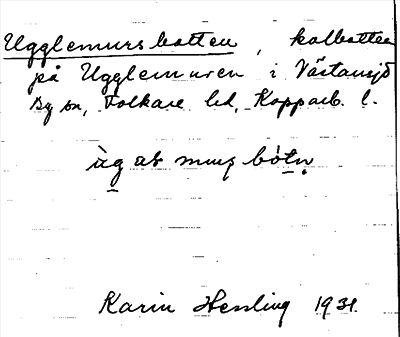 Ugglemursbotten, kolbotten
på Ugglemuren i Västansjö
By sn, Folkare hd, Kopparb. l.
ùg at muṣ bótṇ
Karin Hessling 1931.